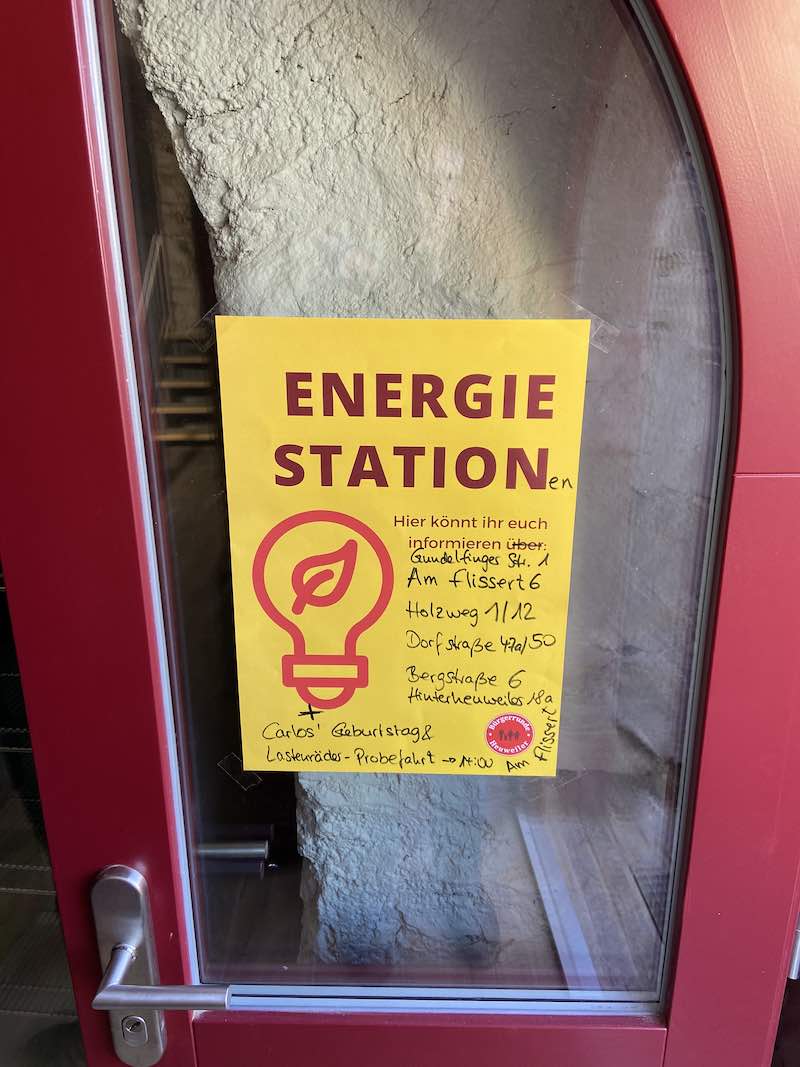 ENERGIE
STATIONen
Hier könnt ihr euch
informieren über:
Gundelfinger Str. 1
Am Flissert 6
Holzweg 1/12
Dorfstraße 47a/50
Bergstraße 6
Hinterheuweiler 18a
+
Carlos' Geburtstag &
Lastenräder-Probefahrt → 14:00 Am Flissert
Bürgerrunde
Heuweiler